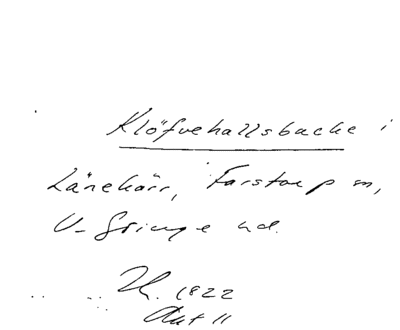 Klöfvehallsbacke i
Länekärr, Farstorp sn,
V. Göinge hd.
Th. 1822
Akt 11